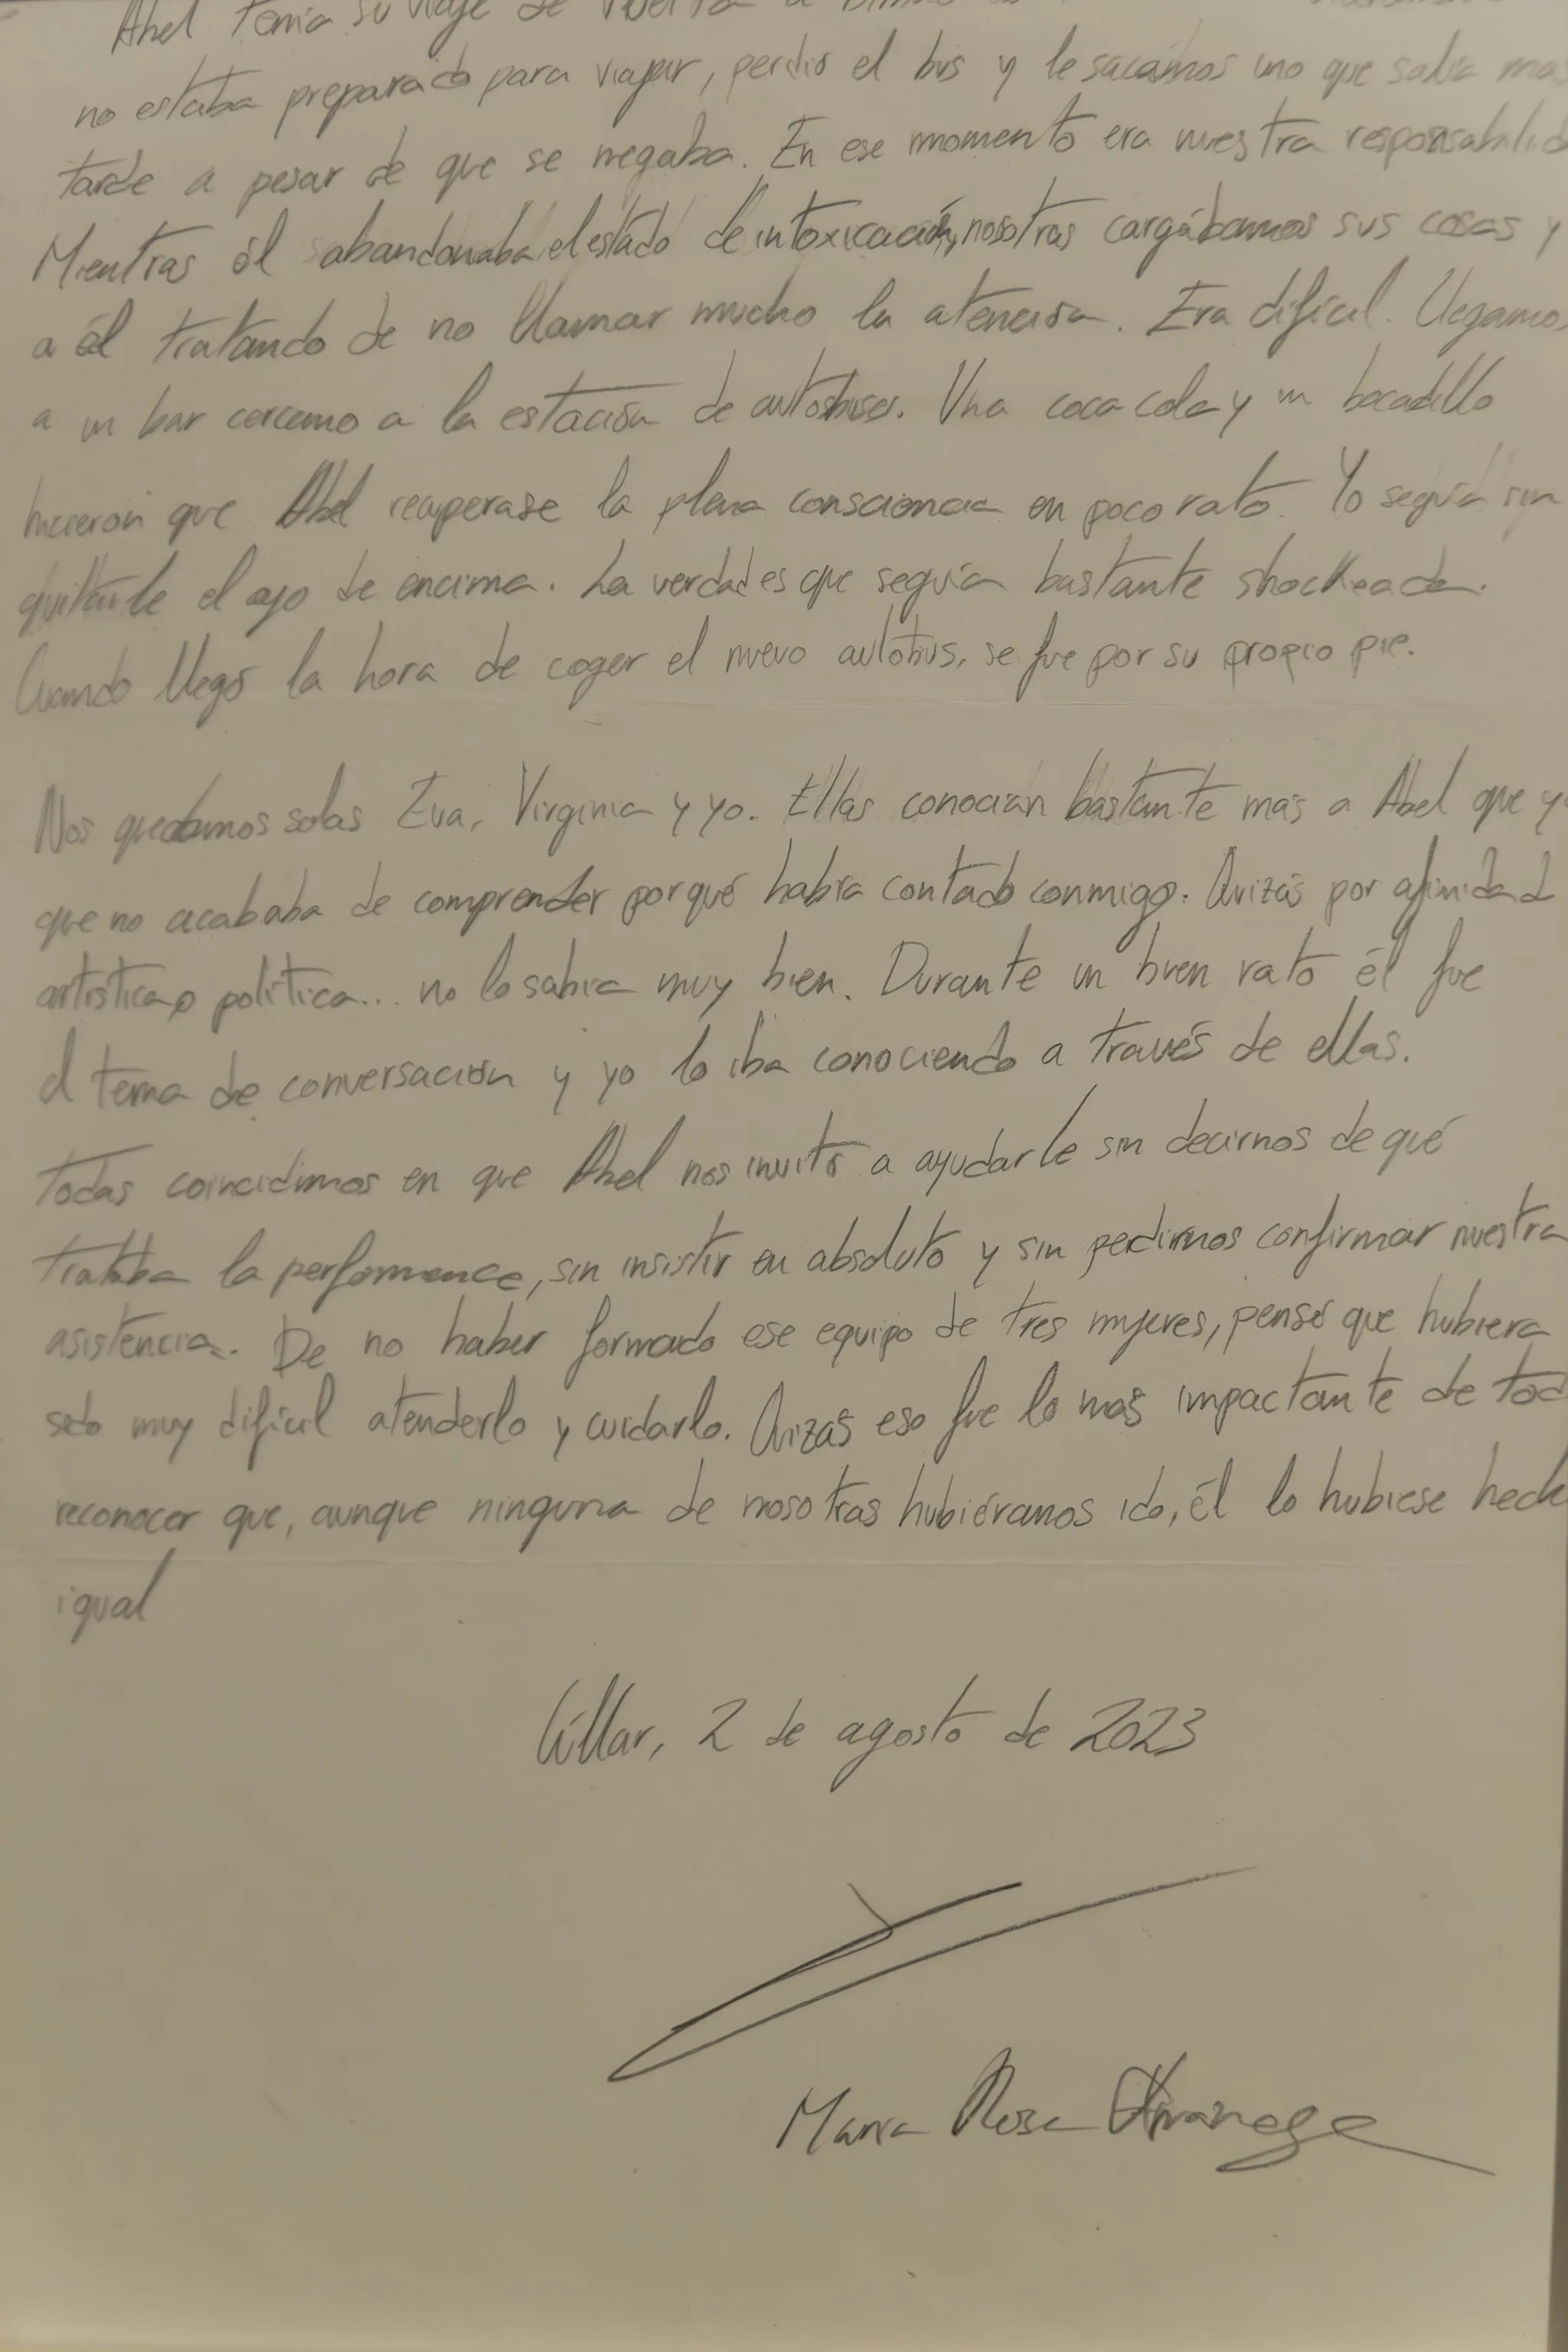 Abel tenía su viaje de vuelta a
no estaba preparado para viajar, perdió el bus y le sacamos uno que salía mas
tarde a pesar de que se negaba. En ese momento era nuestra responsabilid
Mientras él abandonaba el estado de intoxicación, nosotras cargábamos sus cosas y
a él tratando de no llamar mucho la atención. Era difícil. Llegamos
a un bar cercano a la estación de autobuses. Una coca cola y un bocadillo
hicieron que Abel recuperase la plena consciencia en poco rato. Yo seguía sin
quitarle el ojo de encima. La verdad es que seguía bastante shockeada.
Cuando llegó la hora de coger el nuevo autobús, se fue por su propio pie.
Nos quedamos solas Eva, Virginia y yo. Ellas conocían bastante más a Abel que yo
que no acababa de comprender por qué había contado conmigo. Quizás por afinidad
artística o política... no lo sabía muy bien. Durante un buen rato él fue
el tema de conversación y yo lo iba conociendo a través de ellas.
Todas coincidimos en que Abel nos invitó a ayudarle sin decirnos de qué
trataba la performance, sin insistir en absoluto y sin pedirnos confirmar nuestra
asistencia. De no haber formado ese equipo de tres mujeres, pensé que hubiera
sido muy difícil atenderlo y cuidarlo. Quizás eso fue lo más impactante de tod
reconocer que, aunque ninguna de nosotras hubiéramos ido, él lo hubiese hech
igual
Cúllar, 2 de agosto de 2023
María Rosa